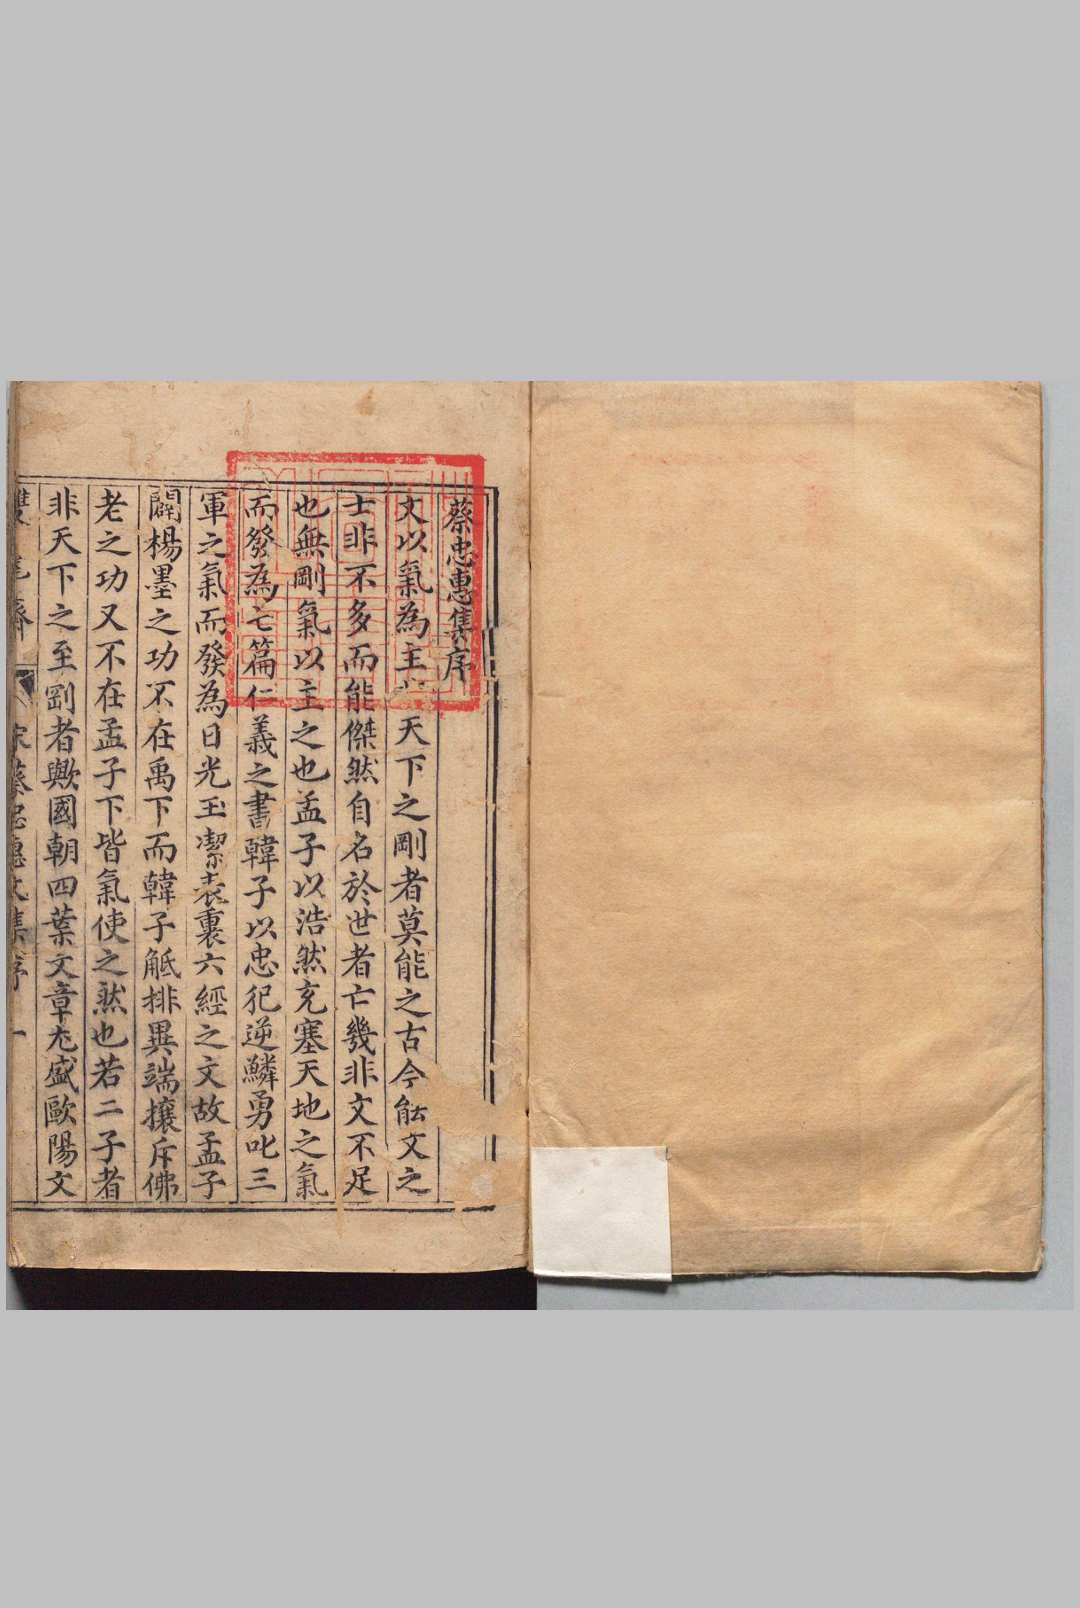 蔡忠惠集序
文以氣為主 天下之剛者莫能之古今能文之
士非不多而能傑然自名於世者亡幾非文不足
也無剛氣以主之也孟子以浩然充塞天地之氣
而發為七篇仁義之書韓子以忠犯逆鱗勇叱三
軍之氣而發為日光玉潔表裏六經之文故孟子
闢楊墨之功不在禹下而韓子觝排異端攘斥佛
老之功又不在孟子下皆氣使之然也若二子者
非天下之至剛者歟國朝四葉文章尤盛歐陽文
雙甕齋 宋蔡忠惠文集序 一